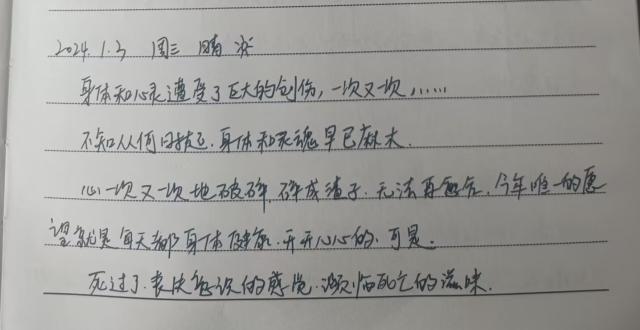 2024.1.3 周三 晴 冷
身体和心灵遭受了巨大的创伤，一次又一次，……
不知从何日起，身体和灵魂早已麻木.
心一次又一次地破碎，碎成渣子. 无法再愈合. 今年唯一的愿
望就是每天都身体健康. 开开心心的. 可是.
死过了. 失 的感觉. 濒临死亡的滋味.